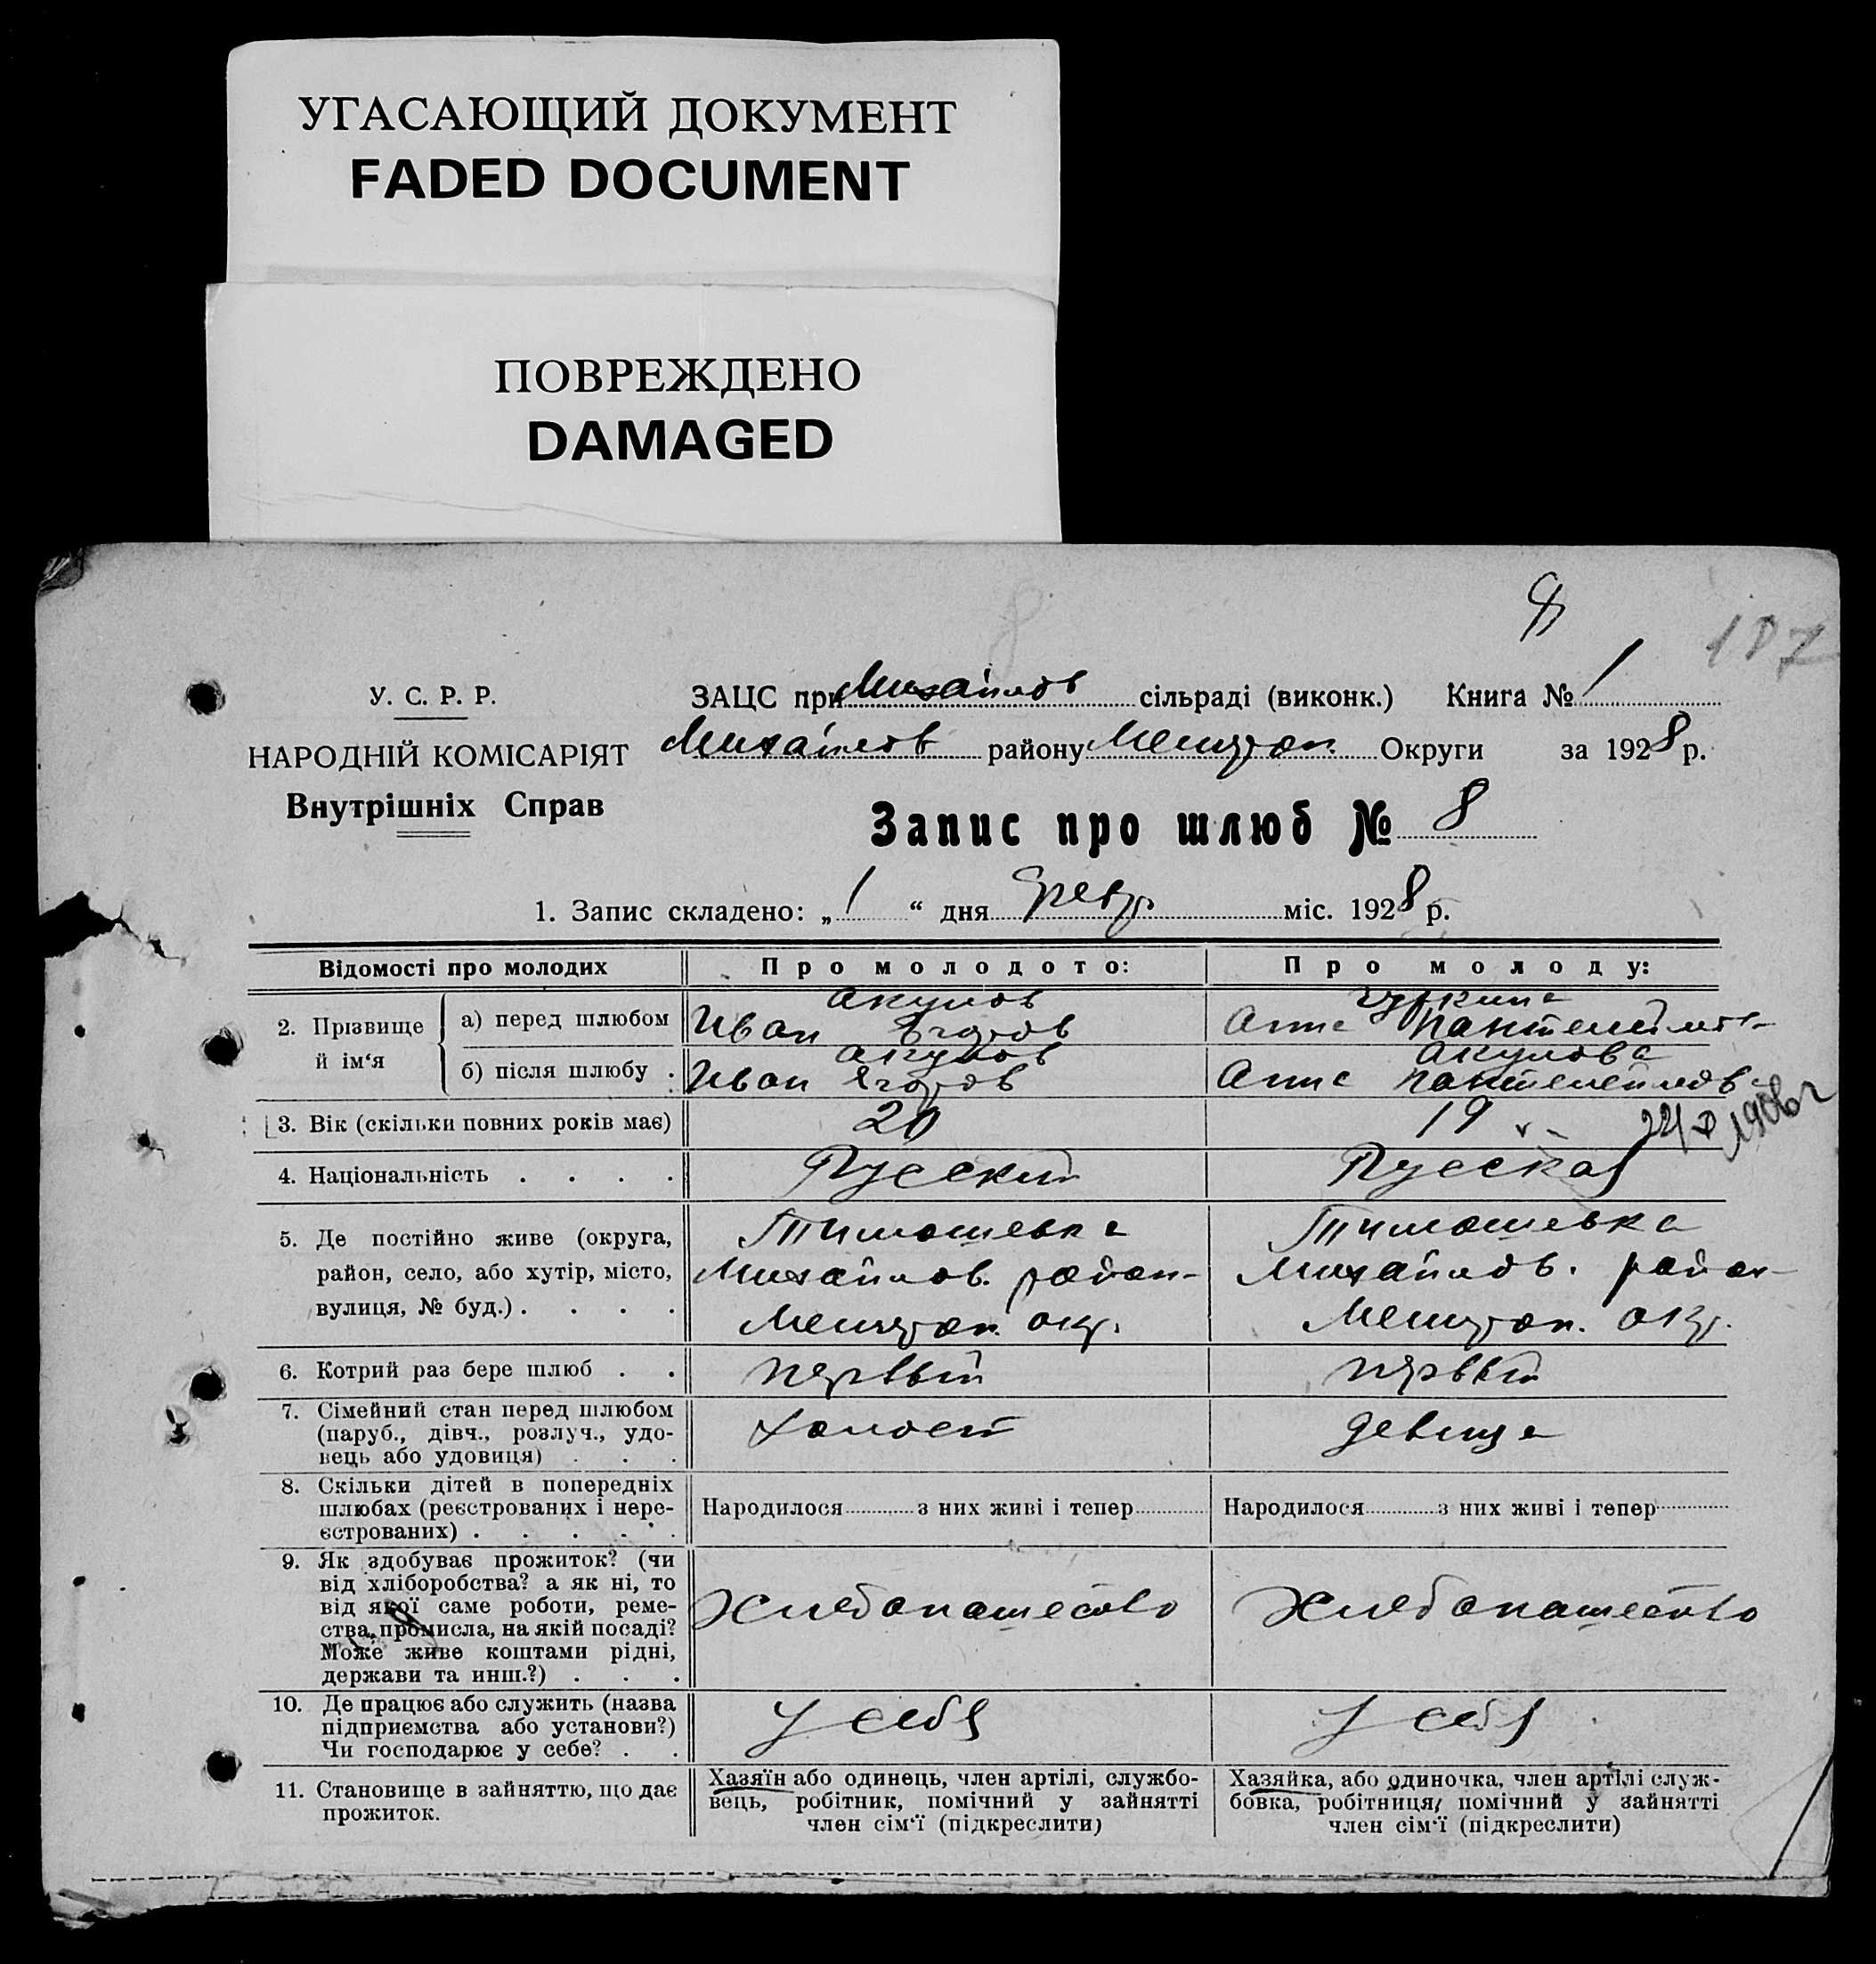 УГАСАЮЩИЙ ДОКУМЕНТ
FADED DOCUMENT
ПОВРЕЖДЕНО
DAMAGED
8
187
У. С. Р. Р.
НАРОДНІЙ КОМІСАРІЯТ
Внутрішніх Справ
ЗАЦС при Михайлов сільраді (виконк.) Книга № 1
Михайлов району Мелитоп. Округи за 1928 р.
Запис про шлюб № 8
1. Запис складено: „ 1 “ дня февр. міс. 1928 р.
Відомості про молодих
Про молодого:
Про молоду:
2. Прізвище й ім‘я
а) перед шлюбом
Акулов
Иван Егоров
Анна Пантелеймов-
б) після шлюбу .
Акулов
Иван Егоров
Акулова
Анна Пантелеймов-
3. Вік (скільки повних років має)
20
19
4. Національність . . . .
Русский
Русская
5. Де постійно живе (округа,
район, село, або хутір, місто,
вулиця, № буд.) . . . .
Тимошевка
Михайлов. район-
Мелитоп. окр.
Тимошевка
Михайлов. район
Мелитоп. окр.
6. Котрий раз бере шлюб . .
первый
первый
7. Сімейний стан перед шлюбом
(паруб., дівч., розлуч., удо-
вець або удовиця) . . .
холост
девица
8. Скільки дітей в попередніх
шлюбах (реєстрованих і нере-
єстрованих) . . . . .
Народилося з них живі і тепер
Народилося з них живі і тепер
9. Як здобуває прожиток? (чи
від хліборобства? а як ні, то
від якої саме роботи, реме-
ства, промисла, на якій посаді?
Може живе коштами рідні,
держави та инш.?) . . .
Хлебопашество
Хлебопашество
10. Де працює або служить (назва
підприємства або установи?)
Чи господарює у себе? . .
У себя
У себя
11. Становище в зайняттю, що дає
прожиток.
Хазяїн або одинець, член артілі, службо-
вець, робітник, помічний у зайнятті
член сім‘ї (підкреслити)
Хазяйка, або одиночка, член артілі служ-
бовка, робітниця, помічний у зайнятті
член сім‘ї (підкреслити)